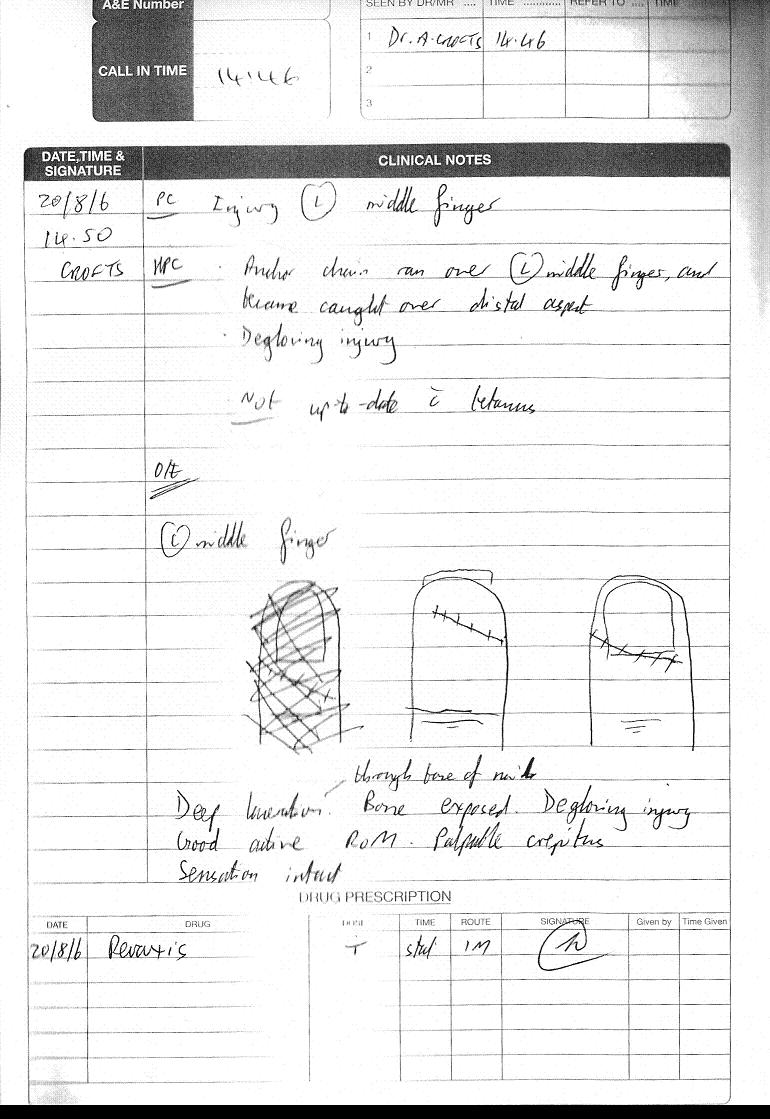 A&E Number
SEEN BY DR/MR .... TIME ............ REFER TO .... TIME
1 Dr. A. CROFTS 14.46
CALL IN TIME 14.46
2
3
DATE,TIME & SIGNATURE CLINICAL NOTES
20/8/6 PC Injury (L) middle finger
14.50
CROFTS HPC · Anchor chain ran over (L) middle finger, and
became caught over distal aspect
· Degloving injury
Not up-to-date c̄ tetanus
O/E
(L) middle finger
through base of nail
Deep laceration. Bone exposed. Degloving injury
Good active ROM. Palpable crepitus
Sensation intact
DRUG PRESCRIPTION
DATE DRUG DOSE TIME ROUTE SIGNATURE Given by Time Given
20/8/6 Revaxis T stat IM